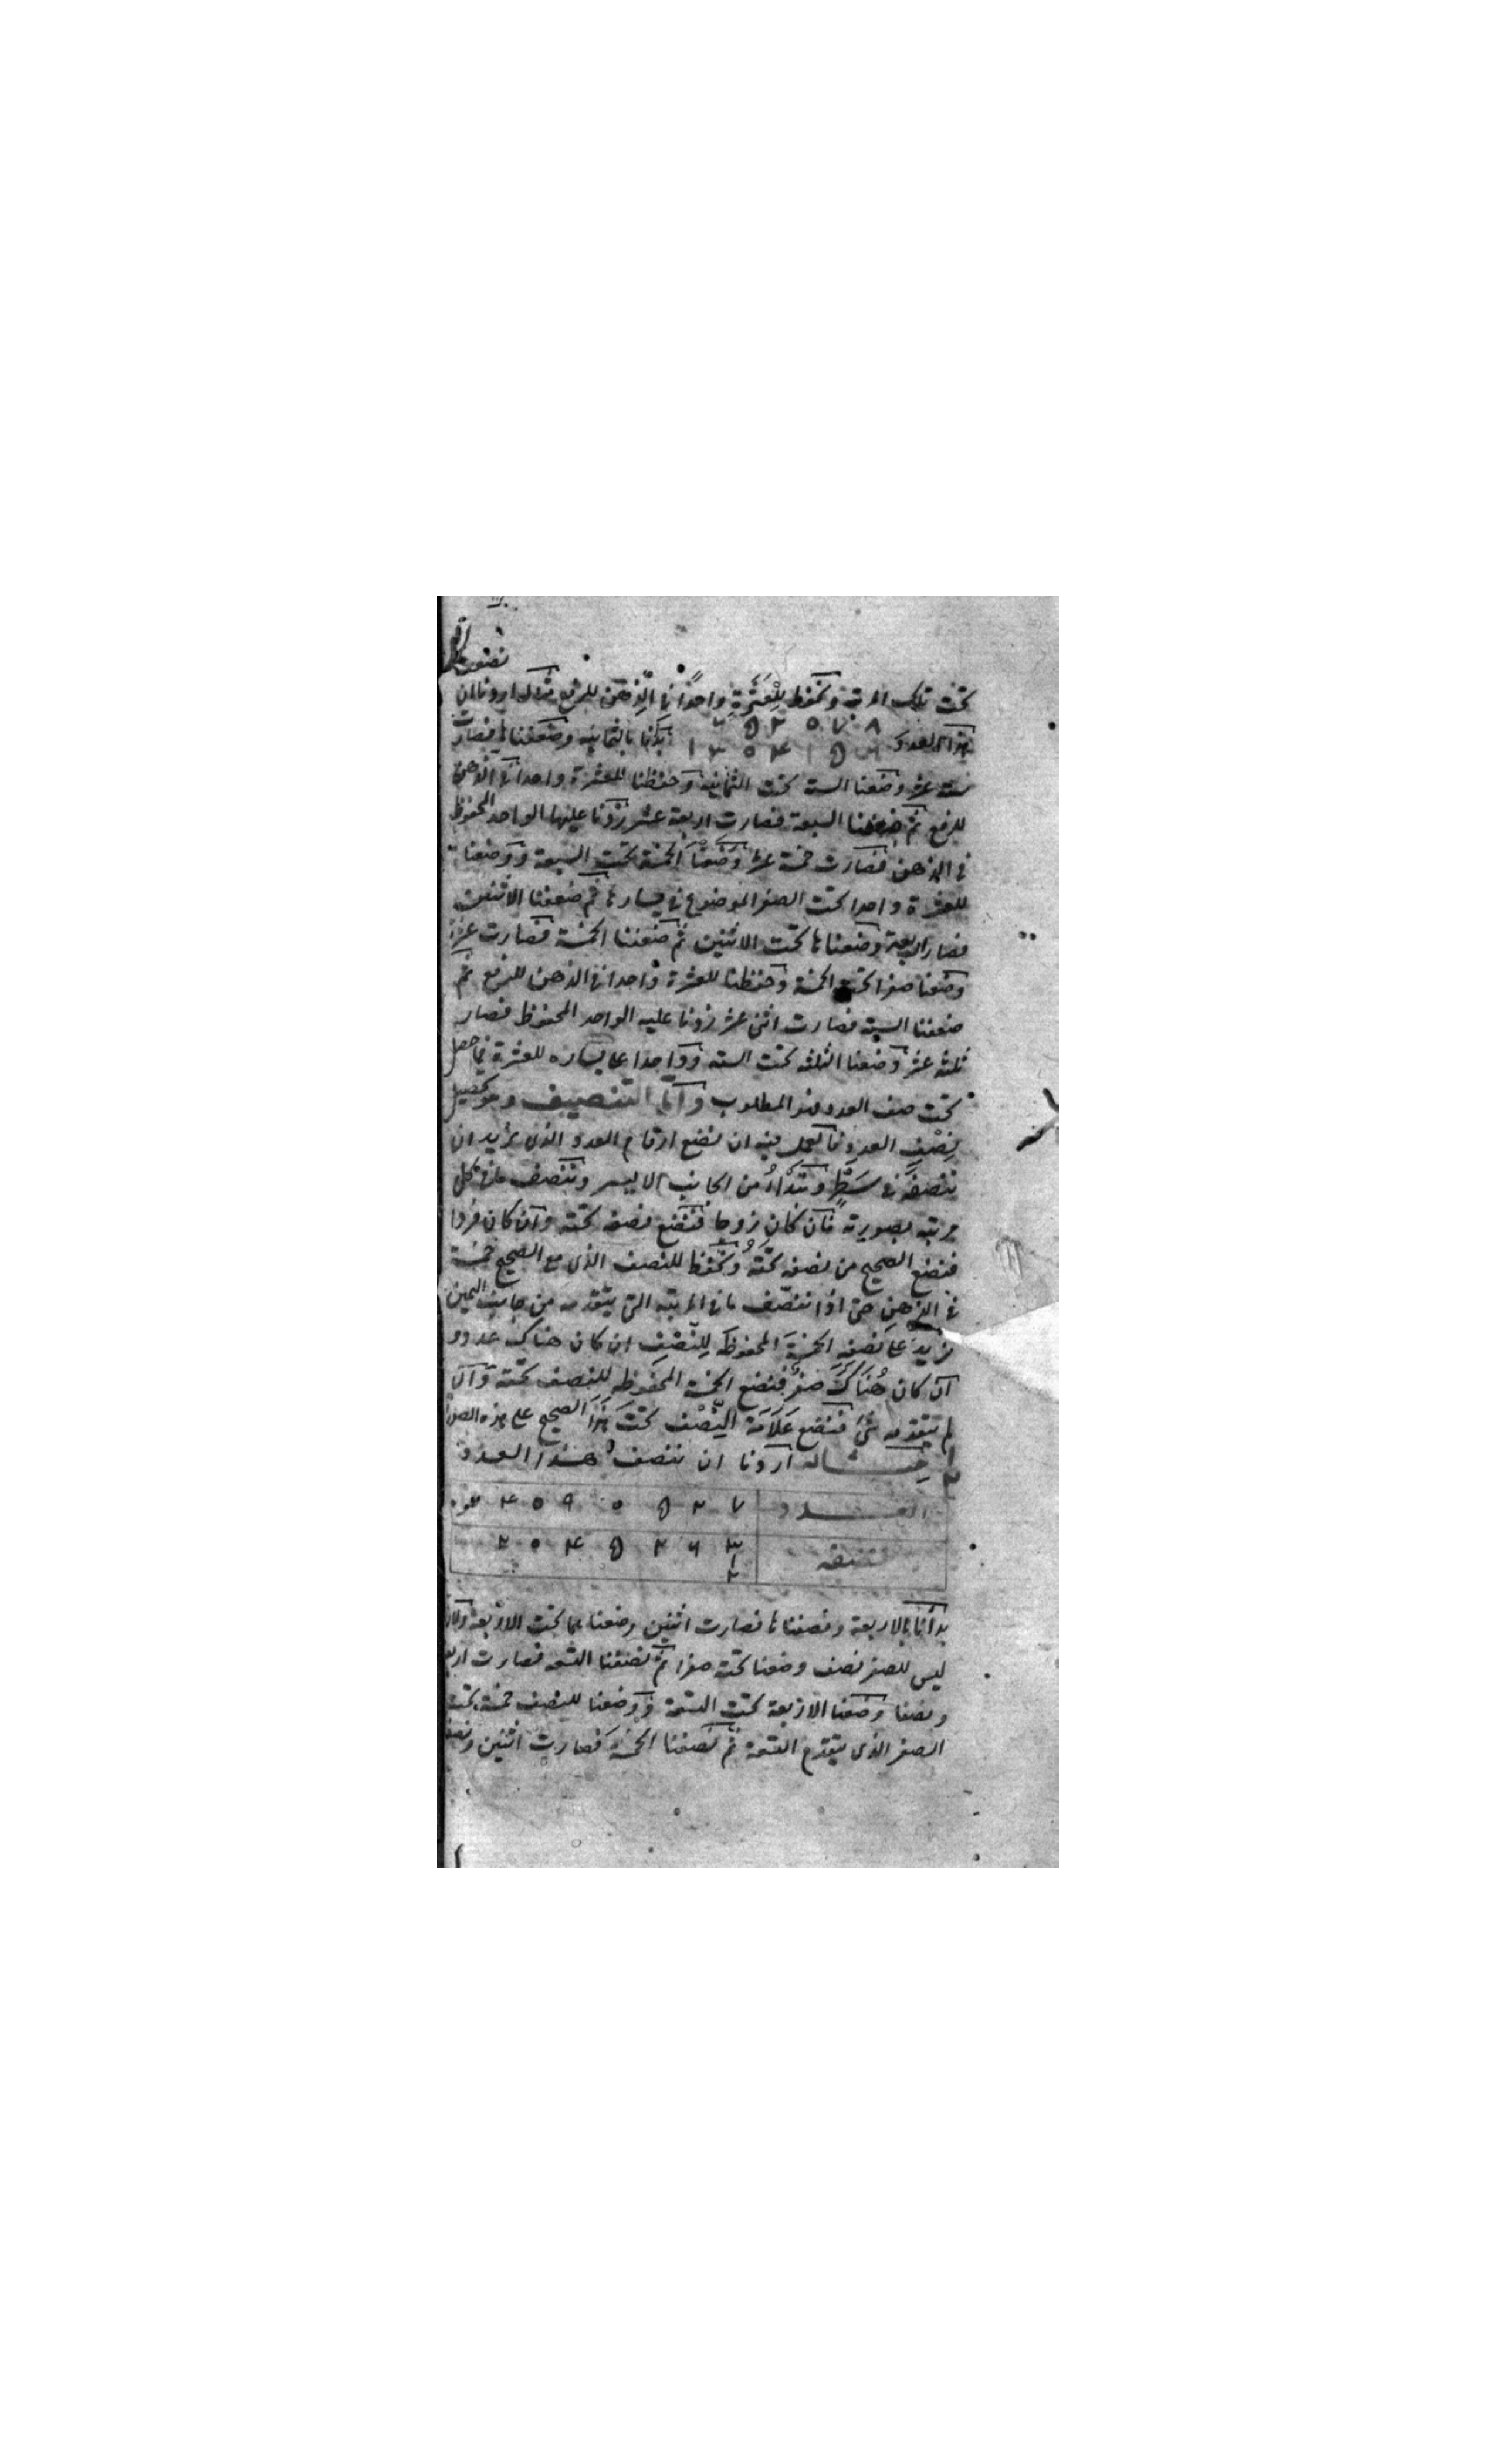 نضعف
تحت تلك المرتبة ونحفظ للعشرة واحدا في الذهن للرفع مثاله اردنا ان
هذا العدد ٨ ٧ ٠ ٢ ۵ ٦ بدأنا بالثمانية وضعفناها فصارت
٦ ۵ ١ ۴ ٠ ٣ ١
ستة عشر وضعنا الستة تحت الثمانية وحفظنا للعشرة واحدا في الذهن
للرفع ثم ضعفنا السبعة فصارت اربعة عشر زدنا عليها الواحد المحفوظ
في الذهن فصارت خمسة عشر وضعنا الخمسة تحت السبعة ووضعنا
للعشرة واحدا تحت الصفر الموضوع في يسارها ثم ضعفنا الاثنين
فصار اربعة وضعناها تحت الاثنين ثم ضعفنا الخمسة فصارت عشرة
وضعنا صفرا تحت الخمسة وحفظنا للعشرة واحدا في الذهن للرفع ثم
ضعفنا الستة فصارت اثنى عشر زدنا عليه الواحد المحفوظ فصار
ثلثة عشر وضعنا الثلثة تحت الستة وواحدا على يساره للعشرة فما حصل
تحت صف العدد فهو المطلوب واما التنصيف وهو تحصيل
نصف العدد فالعمل فيه ان نضع ارقام العدد الذى نريد ان
ننصفه في سطر ونبتدأ من الجانب الايسر وننصف ما في كل
مرتبة بصورته فان كان زوجا فنضع نصفه تحته وان كان فردا
فنضع الصحيح من نصفه تحته ونحفظ للنصف الذى مع الصحيح خمسة
في الذهن حتى اذا ننصف ما في المرتبة التى يتقدمه من جانب اليمين
نزيد على نصفه الخمسة المحفوظة للنصف ان كان هناك عدد و
ان كان هناك صفر فنضع الخمسة المحفوظة للنصف تحته والا
لم يتقدمه شئ فنضع علامة النصف تحت هذا الصحيح على هذه الصورة
١
٢ مثاله اردنا ان ننصف هذا العدد
العدد ٧ ٢ ۵ ٠ ٩ ٠ ۴
نصفه ٣ ٦ ٢ ۵ ۴ ٠ ٢
١
٢
بدأنا بالاربعة ونصفناها فصارت اثنين وضعناهما تحت الاربعة ولان
ليس للصفر نصف وضعنا تحته صفرا ثم نصفنا التسعة فصارت اربعة
ونصفا وضعنا الاربعة تحت التسعة ووضعنا للنصف خمسة تحت
الصفر الذى يتقدم التسعة ثم نصفنا الخمسة فصارت اثنين ونصفا